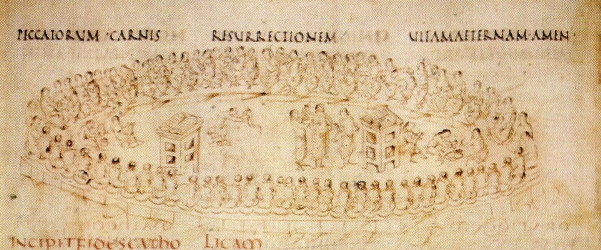 PECCATORUM·CARNIS RESURRECTIONEM UITAMAETERNAM·AMEN·
INCIPITFIDESCATHO LICAM